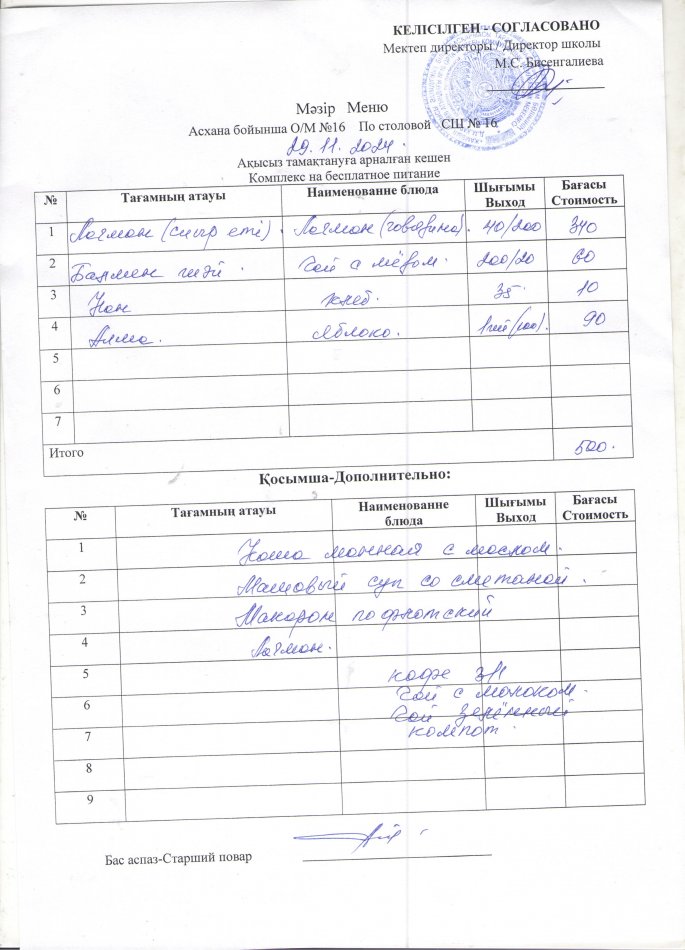 КЕЛІСІЛГЕН - СОГЛАСОВАНО
Мектеп директоры / Директор школы
М.С. Бисенгалиева
Мәзір Меню
Асхана бойынша О/М №16 По столовой СШ № 16
29.11.2024.
Ақысыз тамақтануға арналған кешен
Комплекс на бесплатное питание
№ Тағамның атауы Наименование блюда Шығымы Выход Бағасы Стоимость
1 Лағман (сиыр еті). Лагман (говядина). 40/200 340
2 Балмен шәй. Чай с мёдом. 200/20 60
3 Нан хлеб. 35. 10
4 Алма. Яблоко. 1шт(100). 90
5
6
7
Итого 500.
Қосымша-Дополнительно:
№ Тағамның атауы Наименование блюда Шығымы Выход Бағасы Стоимость
1 Каша манная с маслом.
2 Машовый суп со сметаной.
3 Макарон по флотский
4 Лагман.
5 кофе 3/1
6 Чай с молоком.
Чай зелённый
7 компот.
8
9
Бас аспаз-Старший повар